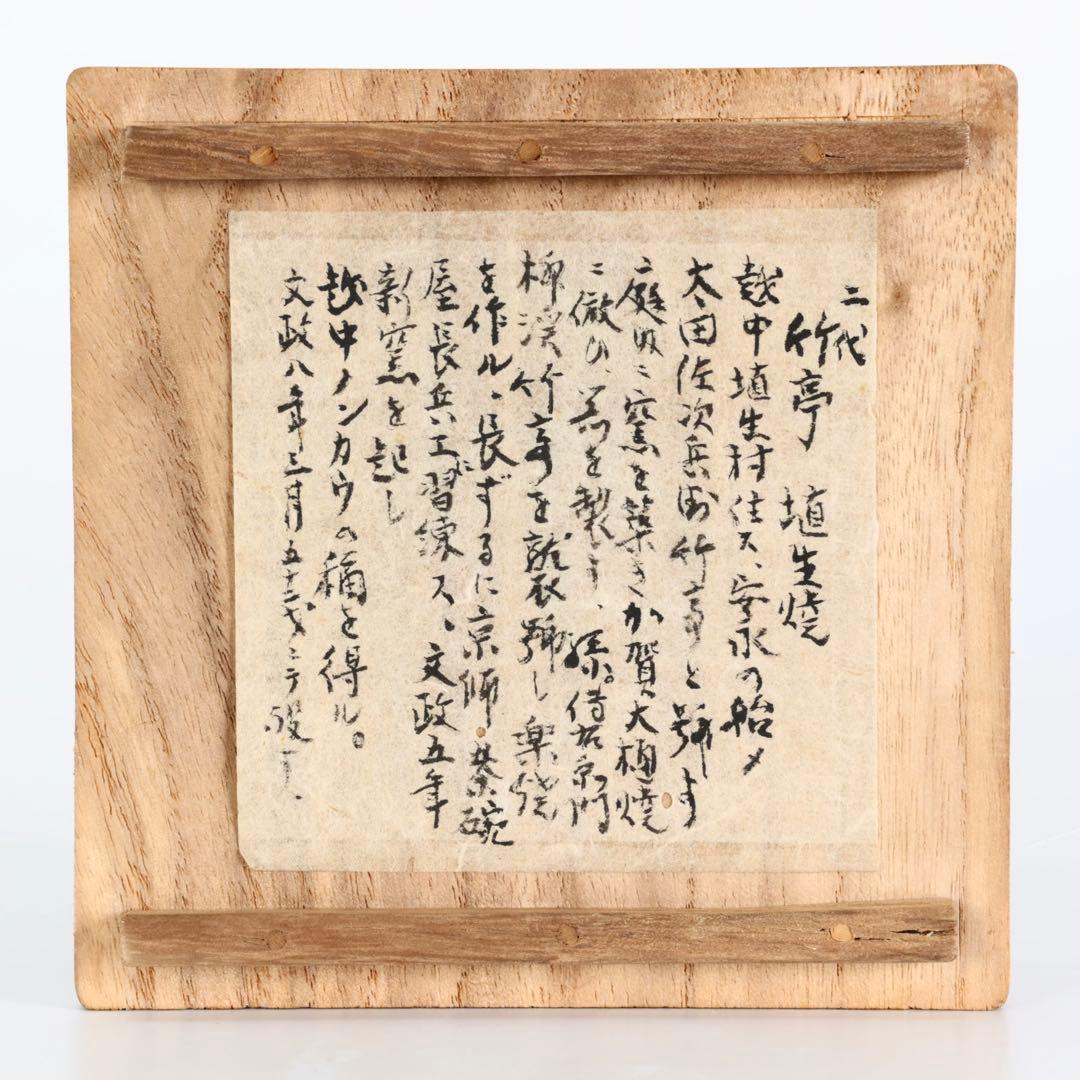 二代
竹亭 埴生焼
越中埴生村住ス、安永の始メ
太田佐次兵衛竹亭と号す
庭内ニ窯を築きか賀大樋焼
ニ倣ひ、器を製す、孫傳右衛門
柳渓竹亭を襲号し楽焼
を作ル、長ずるに京師茶碗
屋長兵エに習練ス、文政五年
新窯を起し
越中ノンカウの称を得ル。
文政八年三月五十二才ニテ歿す、